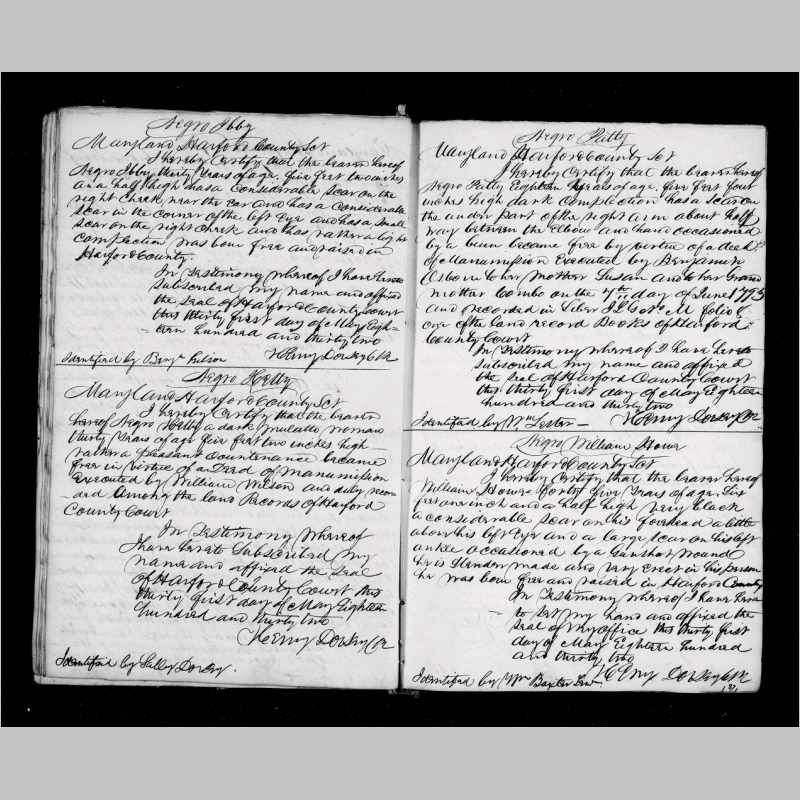 Negro Ibby
Maryland Harford County Sct
I hereby Certify that the bearer hereof
Negro Ibby thirty Years of age, five feet two inches
and a half high has a Considerable scar on the
right Cheek near the ear and has a Considerable
scar in the corner of the left Eye and has a small
scar on the right cheek and has rather a light
complection was born free and raised in
Harford County.
In Testimony whereof I have hereto
subscribed my name and affixed
the seal of Harford County Court
this thirty first day of May Eigh=
teen hundred and thirty two
Henry Dorsey Clk
Identified by Benjn
Negro Hetty
Maryland Harford County Sct
I hereby Certify that the bearer
hereof Negro Hetty a dark mulatto woman
thirty Years of age five feet two inches high
rather a pleasant countenance became
free in virtue of a Deed of manumission
executed by William Wilson and duly recor
ded Among the land Records of Harford
County Court
In Testimony whereof
I have hereto Subscribed my
name and affixed the seal
of Harford County Court this
thirty first day of May Eighteen
hundred and thirty two
Henry Dorsey Clk
Identified by Sally Dorsey.
Negro Patty
Maryland Harford County Sct
I hereby Certify that the bearer hereof
Negro Patty Eighteen Years of age, five feet four
inches high dark Complection has a scar on
the under part of the right arm about half
way between the Elbow and hand occasioned
by a burn became free by virtue of a deed
of Manumission Executed by Benjamin
Osborn to her Mother Susan and to her Grand
mother Combo on the 7th day of June 1793
and recorded in Liber J L G No M folio
one of the land record Books of Harford
County Court
In Testimony whereof I have hereto
subscribed my name and affixed
the seal of Harford County Court
this thirty first day of May Eighteen
hundred and thirty two
Henry Dorsey Clk
Identified by Wm Lester
Negro William Howe
Maryland Harford County Sct
I hereby Certify that the bearer hereof
William Howe forty five Years of age, five
feet one inch and a half high very black
a considerable scar on his forehead a little
above his left Eye and a large scar on his left
ankle occasioned by a Gunshot wound
he is slender made and very erect in his person
he was born free and raised in Harford County
In Testimony whereof I have here
to set my hand and affixed the
seal of my office this thirty first
day of May Eighteen hundred
and thirty two
Henry Dorsey Clk
Identified by Wm Baxter